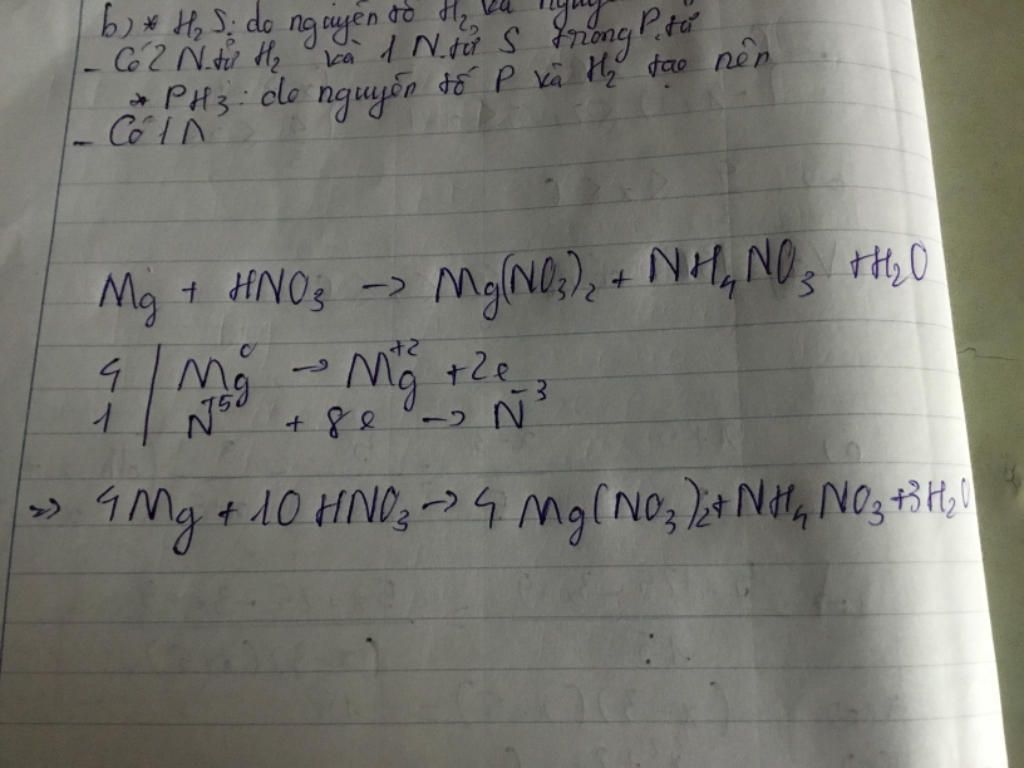 b) * H₂S: do nguyên tố H₂ và
- Có 2 N.tử H₂ và 1 N.tử S trong P.tử
* PH₃: do nguyên tố P và H₂ tạo nên
- Có 1 N
Mg + HNO₃ → Mg(NO₃)₂ + NH₄NO₃ + H₂O
4 | Mg⁰ → Mg⁺² + 2e
1 | N⁺⁵ + 8e → N⁻³
=> 4Mg + 10 HNO₃ → 4 Mg(NO₃)₂ + NH₄NO₃ + 3H₂O